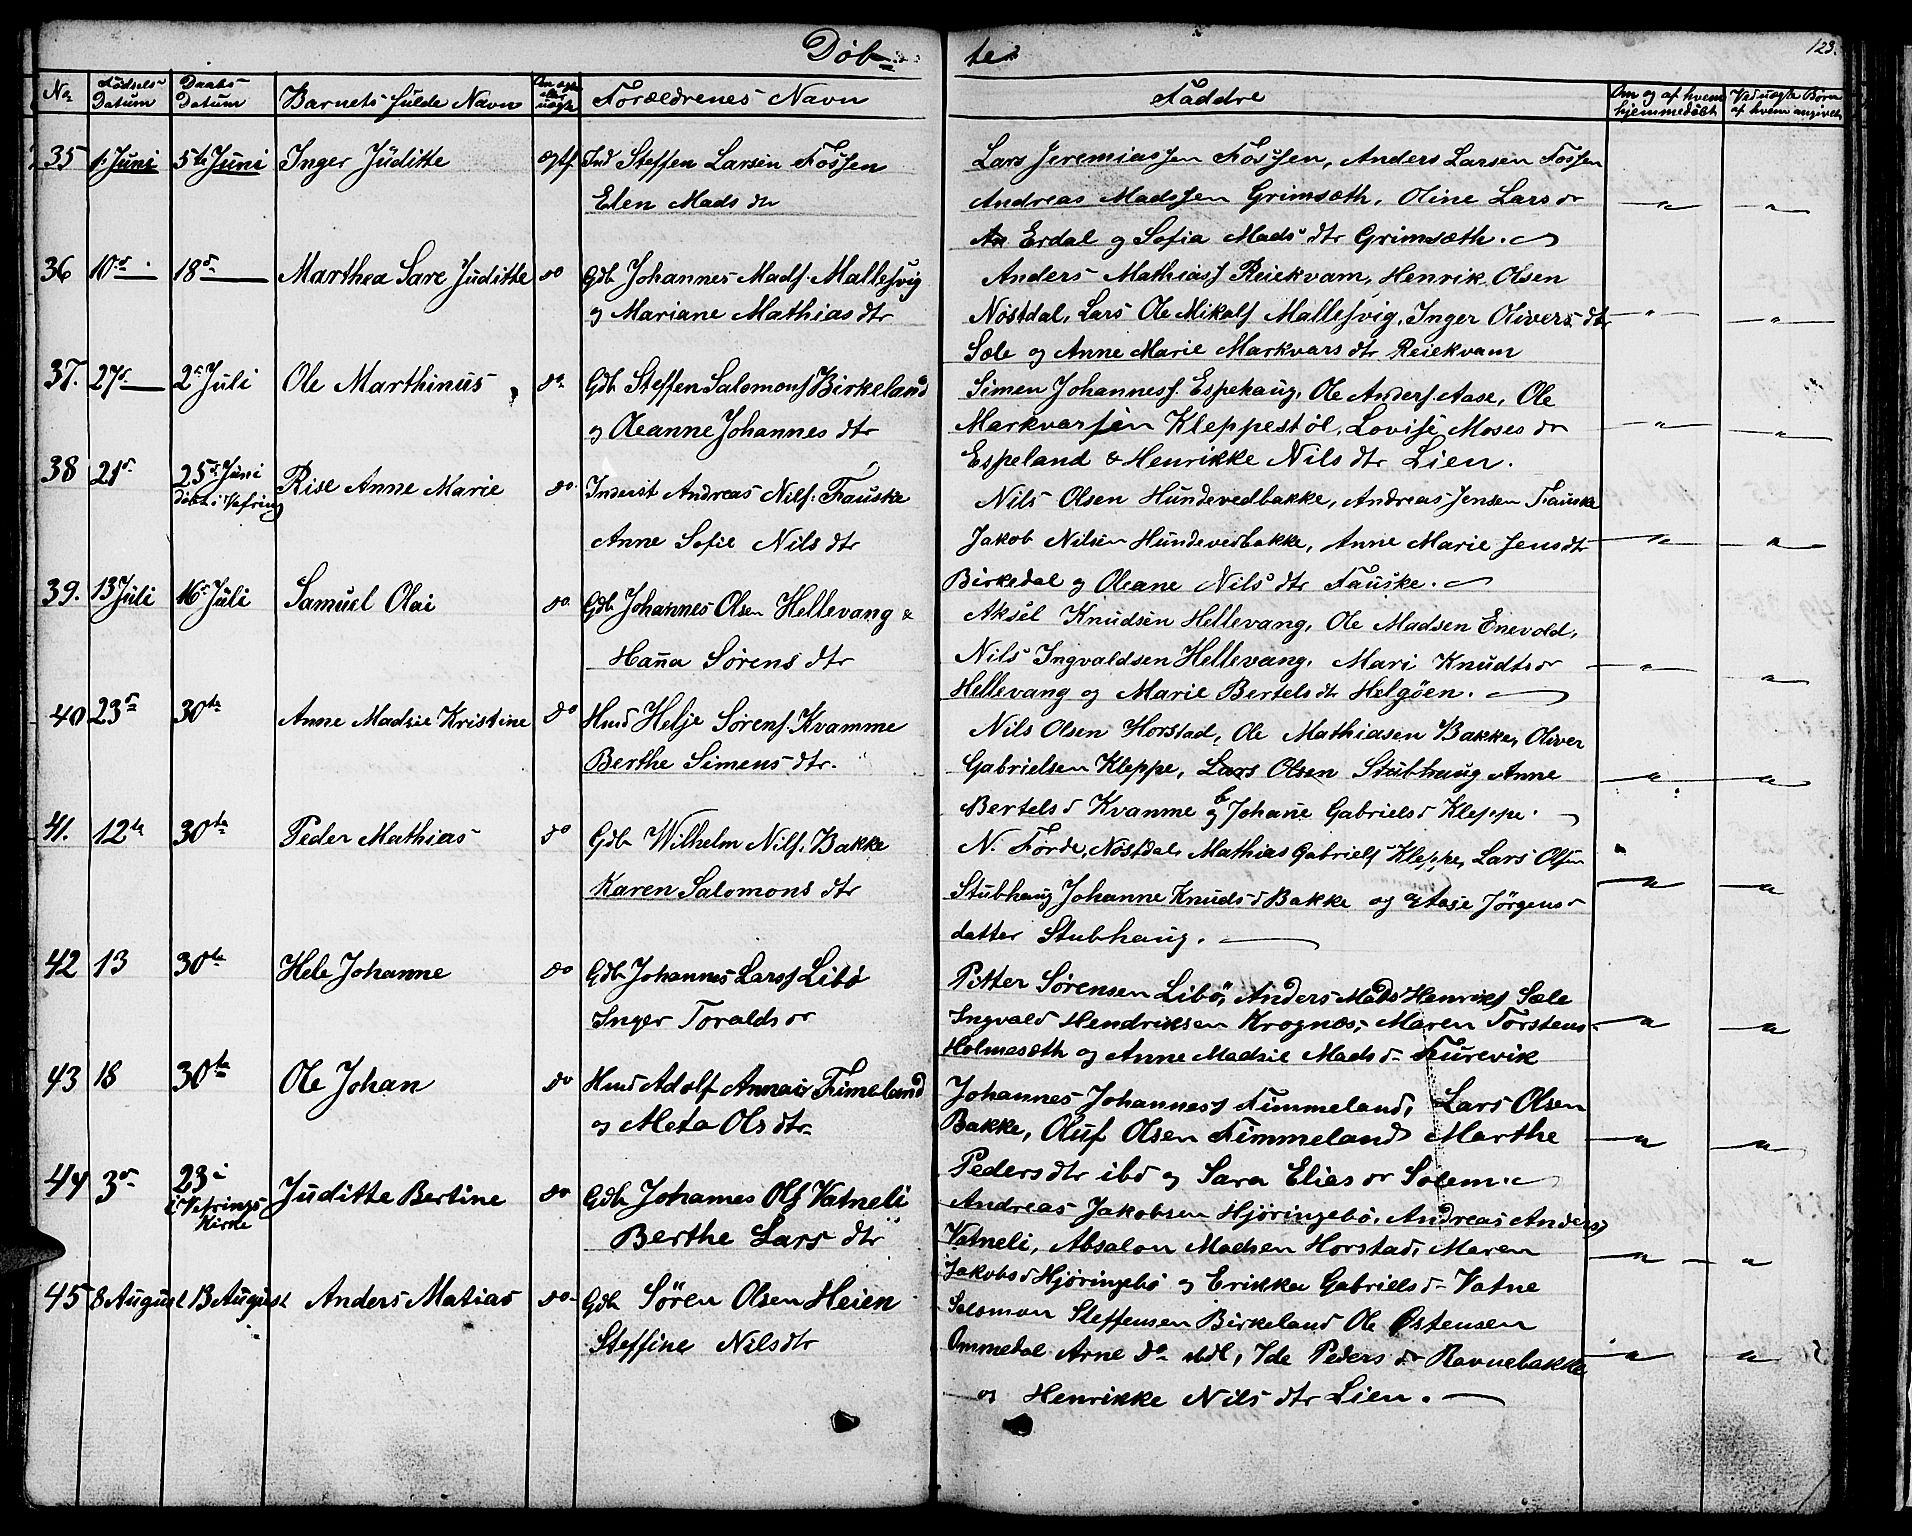 Døb=
te
123.
No
Fødsels-
Datum
Daabs-
Datum
Barnets fulde Navn
Om ægte
eller
uægte
Forældrenes Navn
Faddre
Om og af hvem
hjemmedøbt
Ved uægte Børn
af hvem angivet
35 1. Juni 5te Juni Inger Juditte ægtf Ind Steffen Larsen Fossen
Elen Mads dtr
Lars Jeremiassen Fossen, Anders Larsen Fossen
Andreas Madssen Grimsæth, Oline Lars dr
Erdal og Sofia Mads dtr Grimsæth.
36 10de 18de Marthea Sare Juditte do Gdb Johannes Mads. Mallesvig
og Mariane Mathias dtr
Anders Mathiass Reiekvam, Henrik Olsen
Nøstdal, Lars Ole Mikals Mallesvig, Inger Olivers dtr
Sæle og Anne Marie Markvars dtr Reiekvam
37. 27de 2de Juli Ole Marthinus do Gdb Steffen Salomons Birkeland
og Oleanne Johannes dtr
Simen Johanness. Espehaug, Ole Anders. Aase, Ole
Markvarsen Kleppestøl, Lovise Moses dr
Espeland & Henrikke Nils dtr Lien.
38 21de 25de Juni Rise Anne Marie do Inderst Andreas Nils. Fauske
døbt i Vefring
Anne Sofie Nils dtr
Nils Olsen Hundevedbakke, Andreas Jensen Fauske
Jakob Nilsen Hundevedbakke, Anne Marie Jens dtr
Birkedal og Oleane Nils dtr Fauske.
39. 13 Juli 16de Juli Samuel Olai do Gdb Johannes Olsen Hellevang &
Hana Sørens dtr
Aksel Knudsen Hellevang, Ole Madsen Enevold,
Nils Ingvaldsen Hellevang, Mari Knudts dr
Hellevang og Marie Bertels dtr Helgøen.
40 23de 30te Anne Madzie Kristine do Hmd Helje Sørens. Kvamme
Berthe Simens dtr.
Nils Olsen Horstad, Ole Mathiasen Bakke, Oliver
Gabrielsen Kleppe, Lars Olsen Stubhaug Anne
Bertels d Kvamme og Johane Gabriels d Kleppe.
41. 12te 30te Peder Mathias do Gdb Wilhelm Nils. Bakke
Karen Salomons dtr
N. Førde, Nøstdal, Mathias Gabriels Kleppe, Lars Olsen
Stubhaug Johanne Knuds d Bakke og Aase Jørgens
datter Stubhaug.
42 13 30te Hele Johanne do Gdb Johannes Larss Libø
Inger Toralds dr
Pitter Sørensen Libø, Anders Mads Henriks Sæle
Ingvald Hendriksen Krognæs, Maren Torstens
Holmesæth og Anne Madzie Mads d Furevik
43 18 30te Ole Johan do Hmd Adolf Fimeland
og Meta Ols dtr
Johannes Johanness Fimmeland, Lars Olsen
Bakke, Oluf Olsen Fimmeland Marthe
Peders dtr ibd og Sara Elias dr Solem.
44 3de 23 i Juditte Bertine do Gdb Johannes Ols Vatneli
Vefrings
Kirke
Berthe Lars dtr
Andreas Jakobsen Hjøringebø, Andreas Anders
Vatneli, Absalon Madsen Horstad, Maren
Jakobs d Hjøringebø og Erikka Gabriels d Vatne
45 8 August 13 August Anders Matias do Gdb Sören Olsen Heien
Steffine Nilsdtr
Salomon Steffensen Birkeland Ole Østensen
Ommedal Arne do ibdl, Ide Peders dr Ravnebakke
og Henrikke Nils dtr Lien.